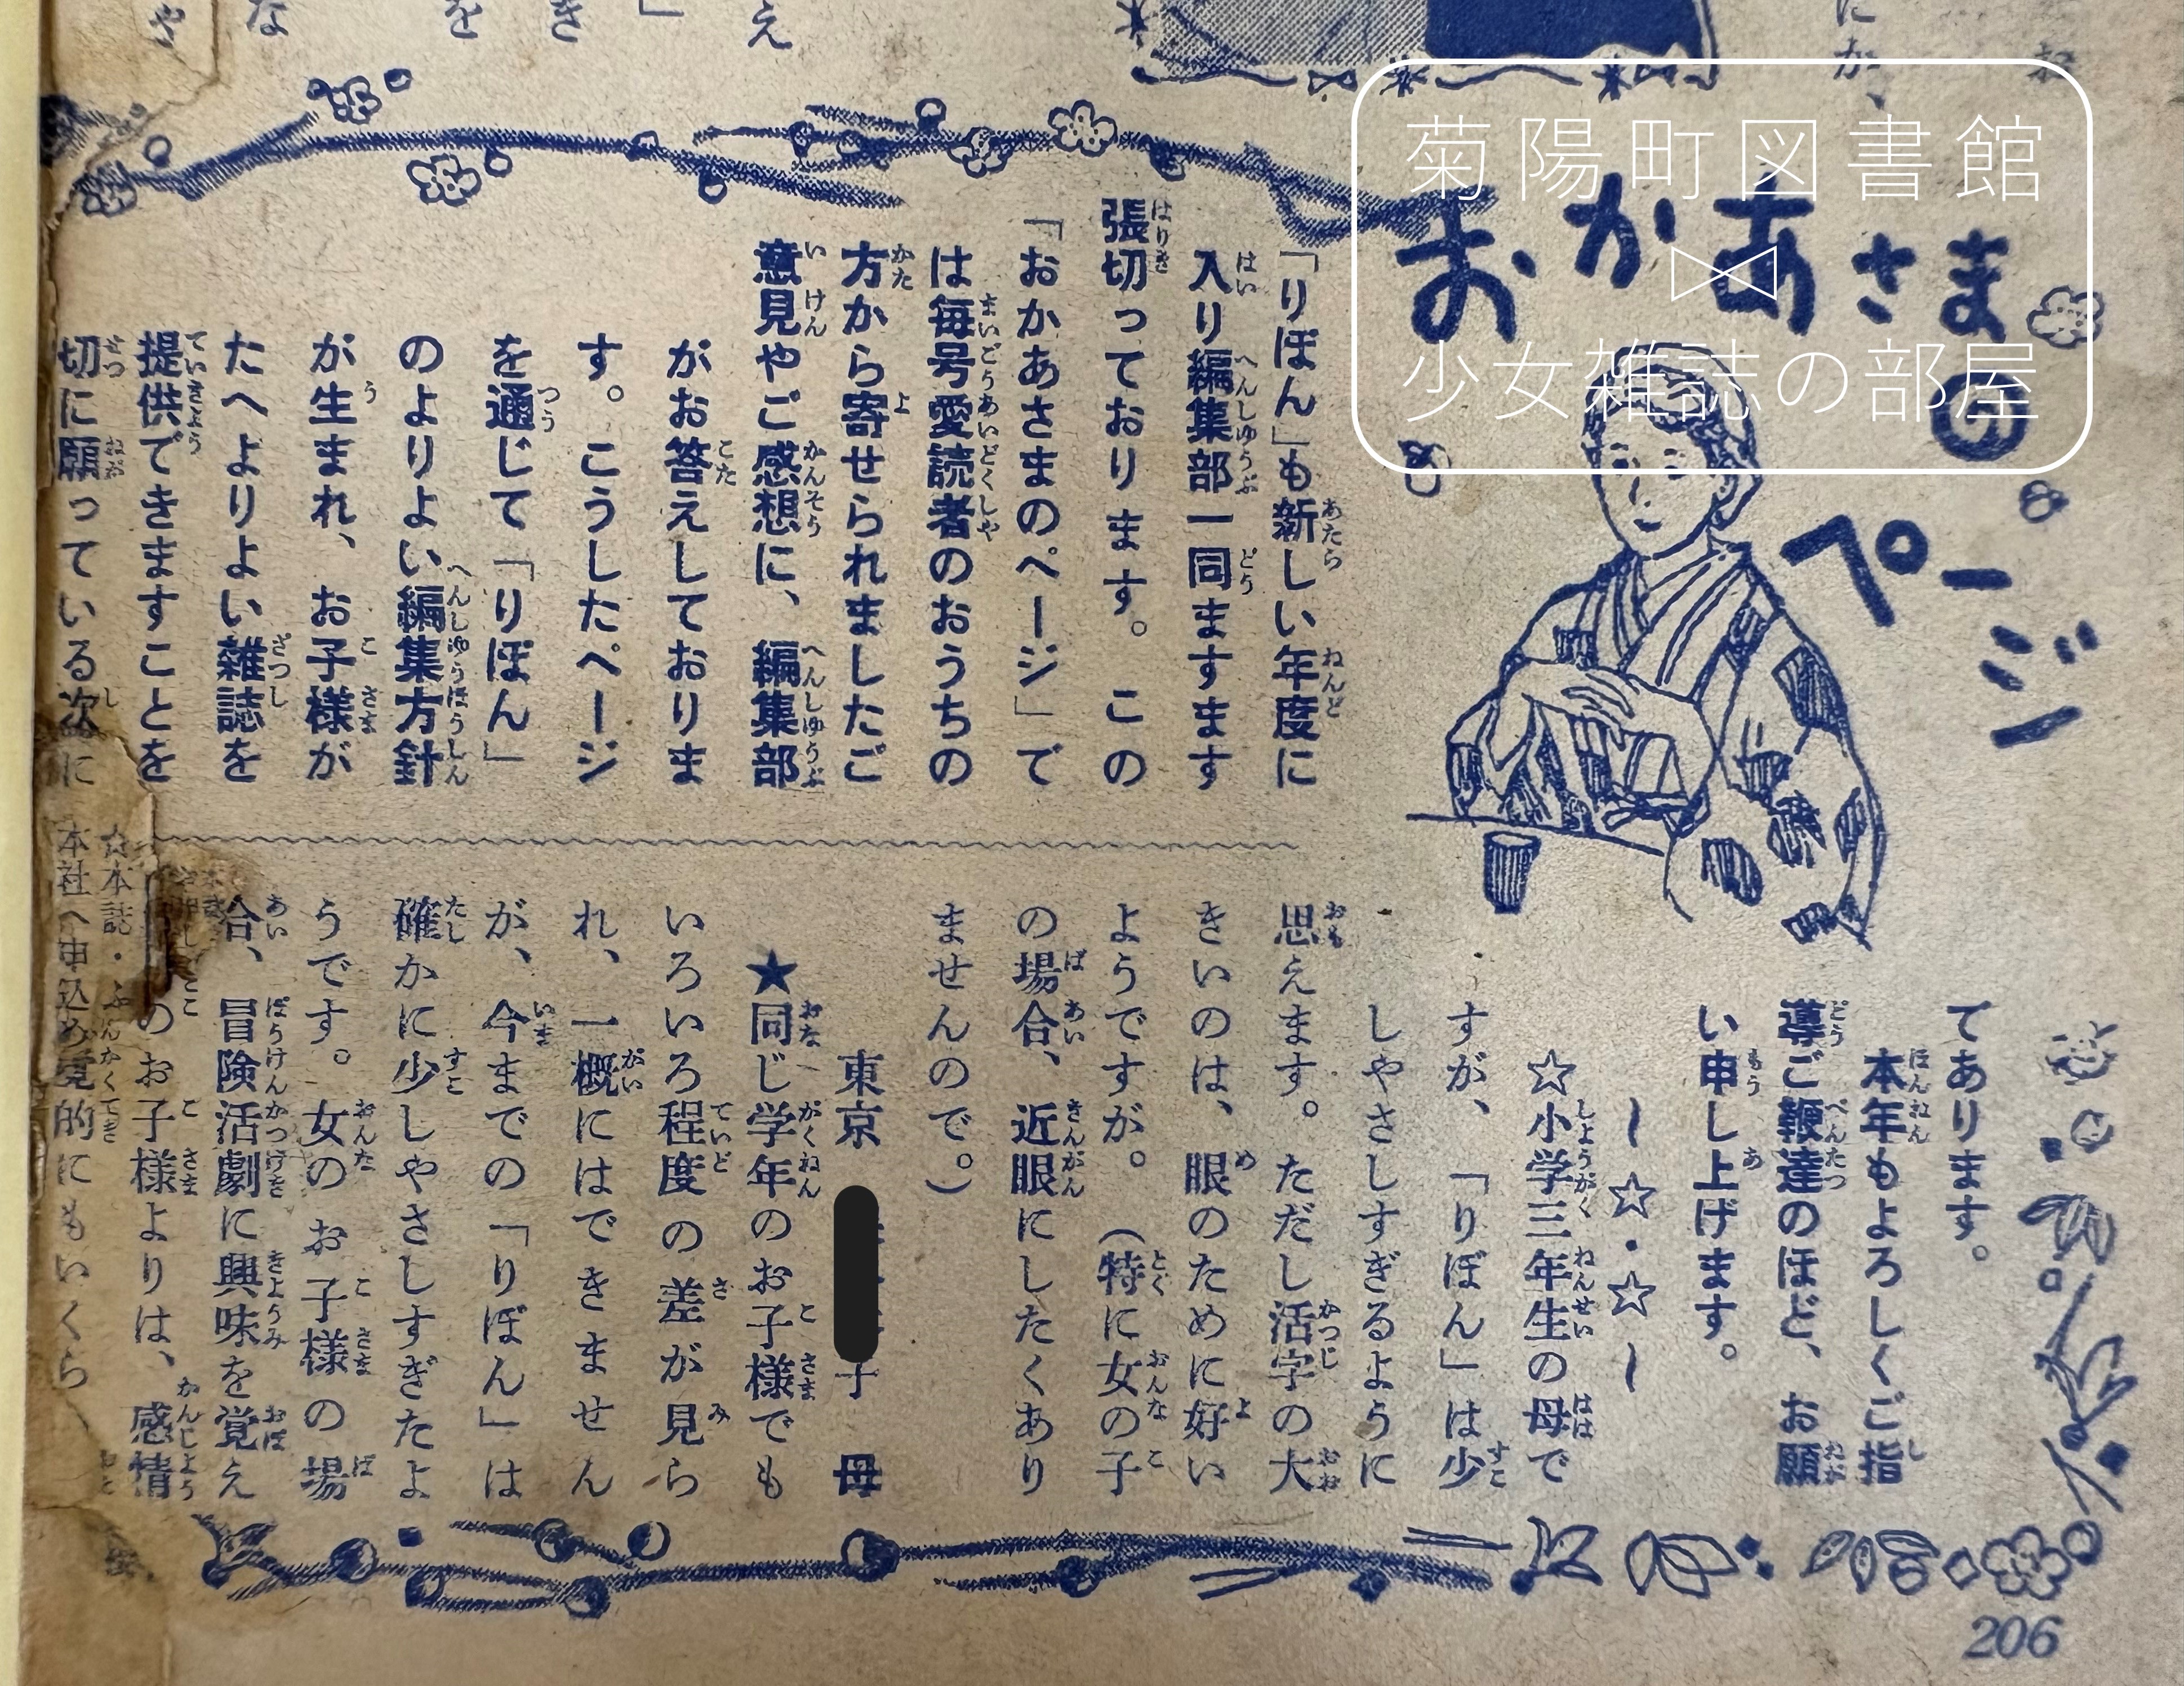 菊陽町図書館
少女雑誌の部屋
おかあさま
の
ページ
「りぼん」も新しい年度に
入り編集部一同ますます
張切っております。 この
「おかあさまのページ」で
は毎号愛読者のおうちの
方から寄せられましたご
意見やご感想に、編集部
がお答えしておりま
す。こうしたページ
を通じて「りぼん」
のよりよい編集方針
が生まれ、お子様が
たへよりよい雑誌を
提供できますことを
切に願っている次に
てあります。
本年もよろしくご指
導ご鞭達のほど、お願
い申し上げます。
ー☆・☆ー
☆小学三年生の母で
すが、「りぼん」は少
しやさしすぎるように
思えます。ただし活字の大
きいのは、眼のために好い
ようですが。(特に女の子
の場合、近眼にしたくあり
ませんので。)
東京
子 母
★同じ学年のお子様でも
いろいろ程度の差が見ら
れ、一概にはできません
が、今までの「りぼん」は
確かに少しやさしすぎたよ
うです。女のお子様の場
合、冒険活劇に興味を覚え
のお子様よりは、感情
的にもいくら
☆本誌・ふ
本社へ申込め
206